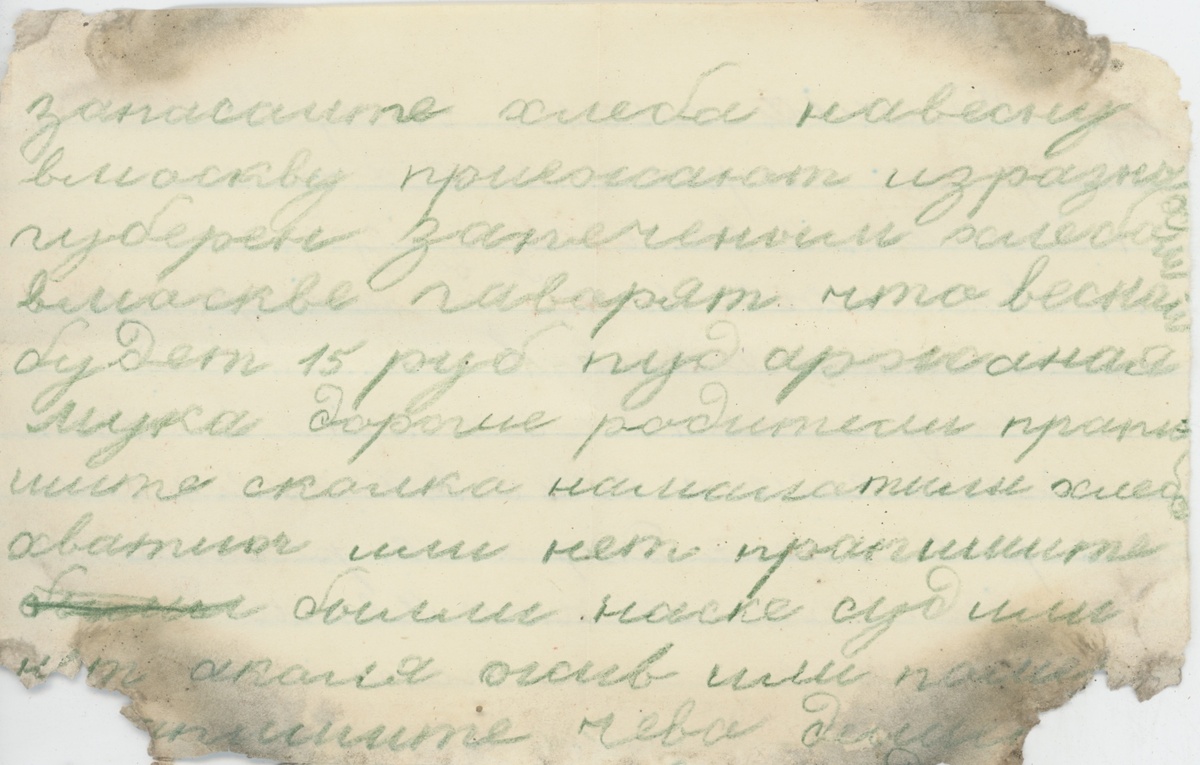 запасаите хлеба навесну
вмоскву приежжают изразных
губерен запеченым хлебом
вмоскве гаварят что весной
будет 15 руб пуд аржаная
мука дорогие родители прапи
шите сколка намалатили хлеба
хватит или нет прапишите
былли наске суд или
нет аколя жив или
пишите чева